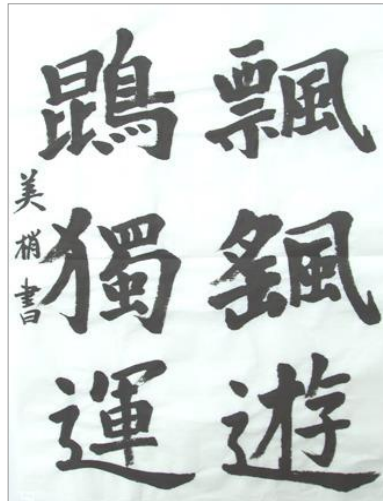 飄颻遊
鵾獨運
美梢書